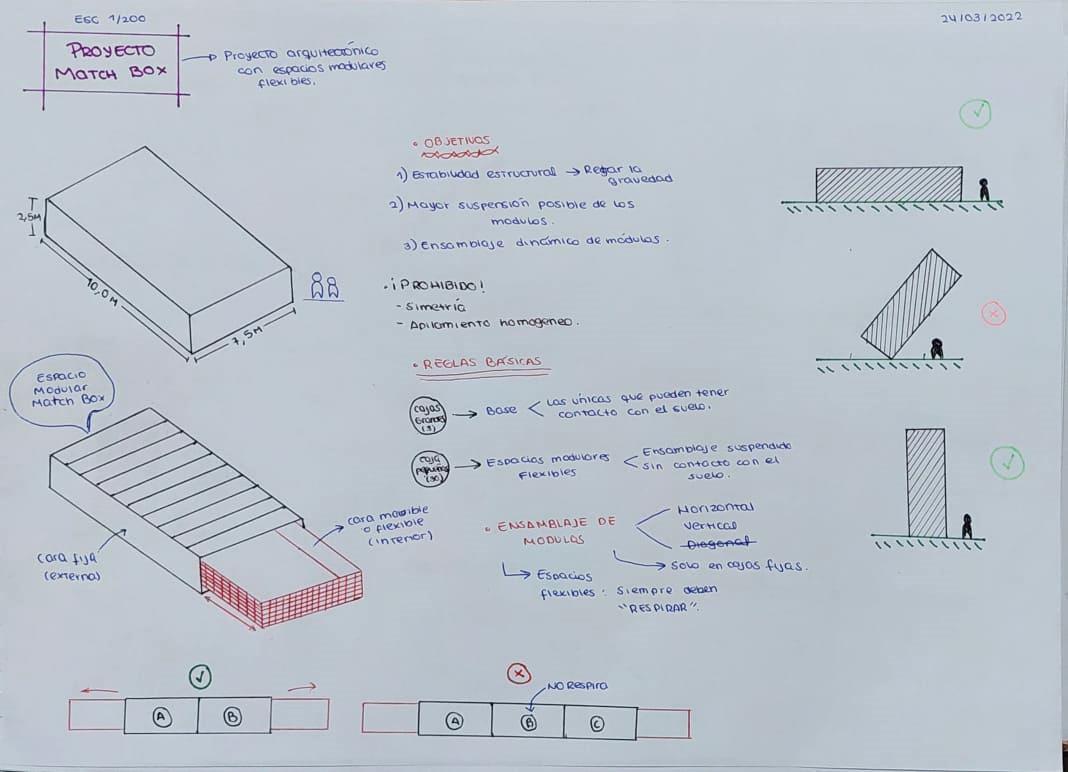 ESC 1/200
24/03/2022
PROYECTO
MATCH BOX
Proyecto arquitectónico
con espacios modulares
flexibles.
• OBJETIVOS
1) Estabilidad estructural → Retar la
gravedad
2) Mayor suspensión posible de los
modulos.
3) Ensamblaje dinámico de módulos.
2,5M
10,0 M
7,5M
• ¡PROHIBIDO!
- Simetría
- Apilamiento homogeneo.
• REGLAS BÁSICAS
Cajas
Grandes
→ Base
Las únicas que pueden tener
contacto con el suelo.
Caja
→ Espacios modulares
flexibles
Ensamblaje suspendido
sin contacto con el
suelo.
ESPACIO
Modular
Match Box
cara movible
o flexible
(interior)
cara fija
(externa)
• ENSAMBLAJE DE
MODULOS
Horizontal
Vertical
Diagonal
→ Solo en cajas fijas.
Espacios
flexibles: Siempre deben
"RESPIRAR".
NO RESPIRA
A
B
A
B
C